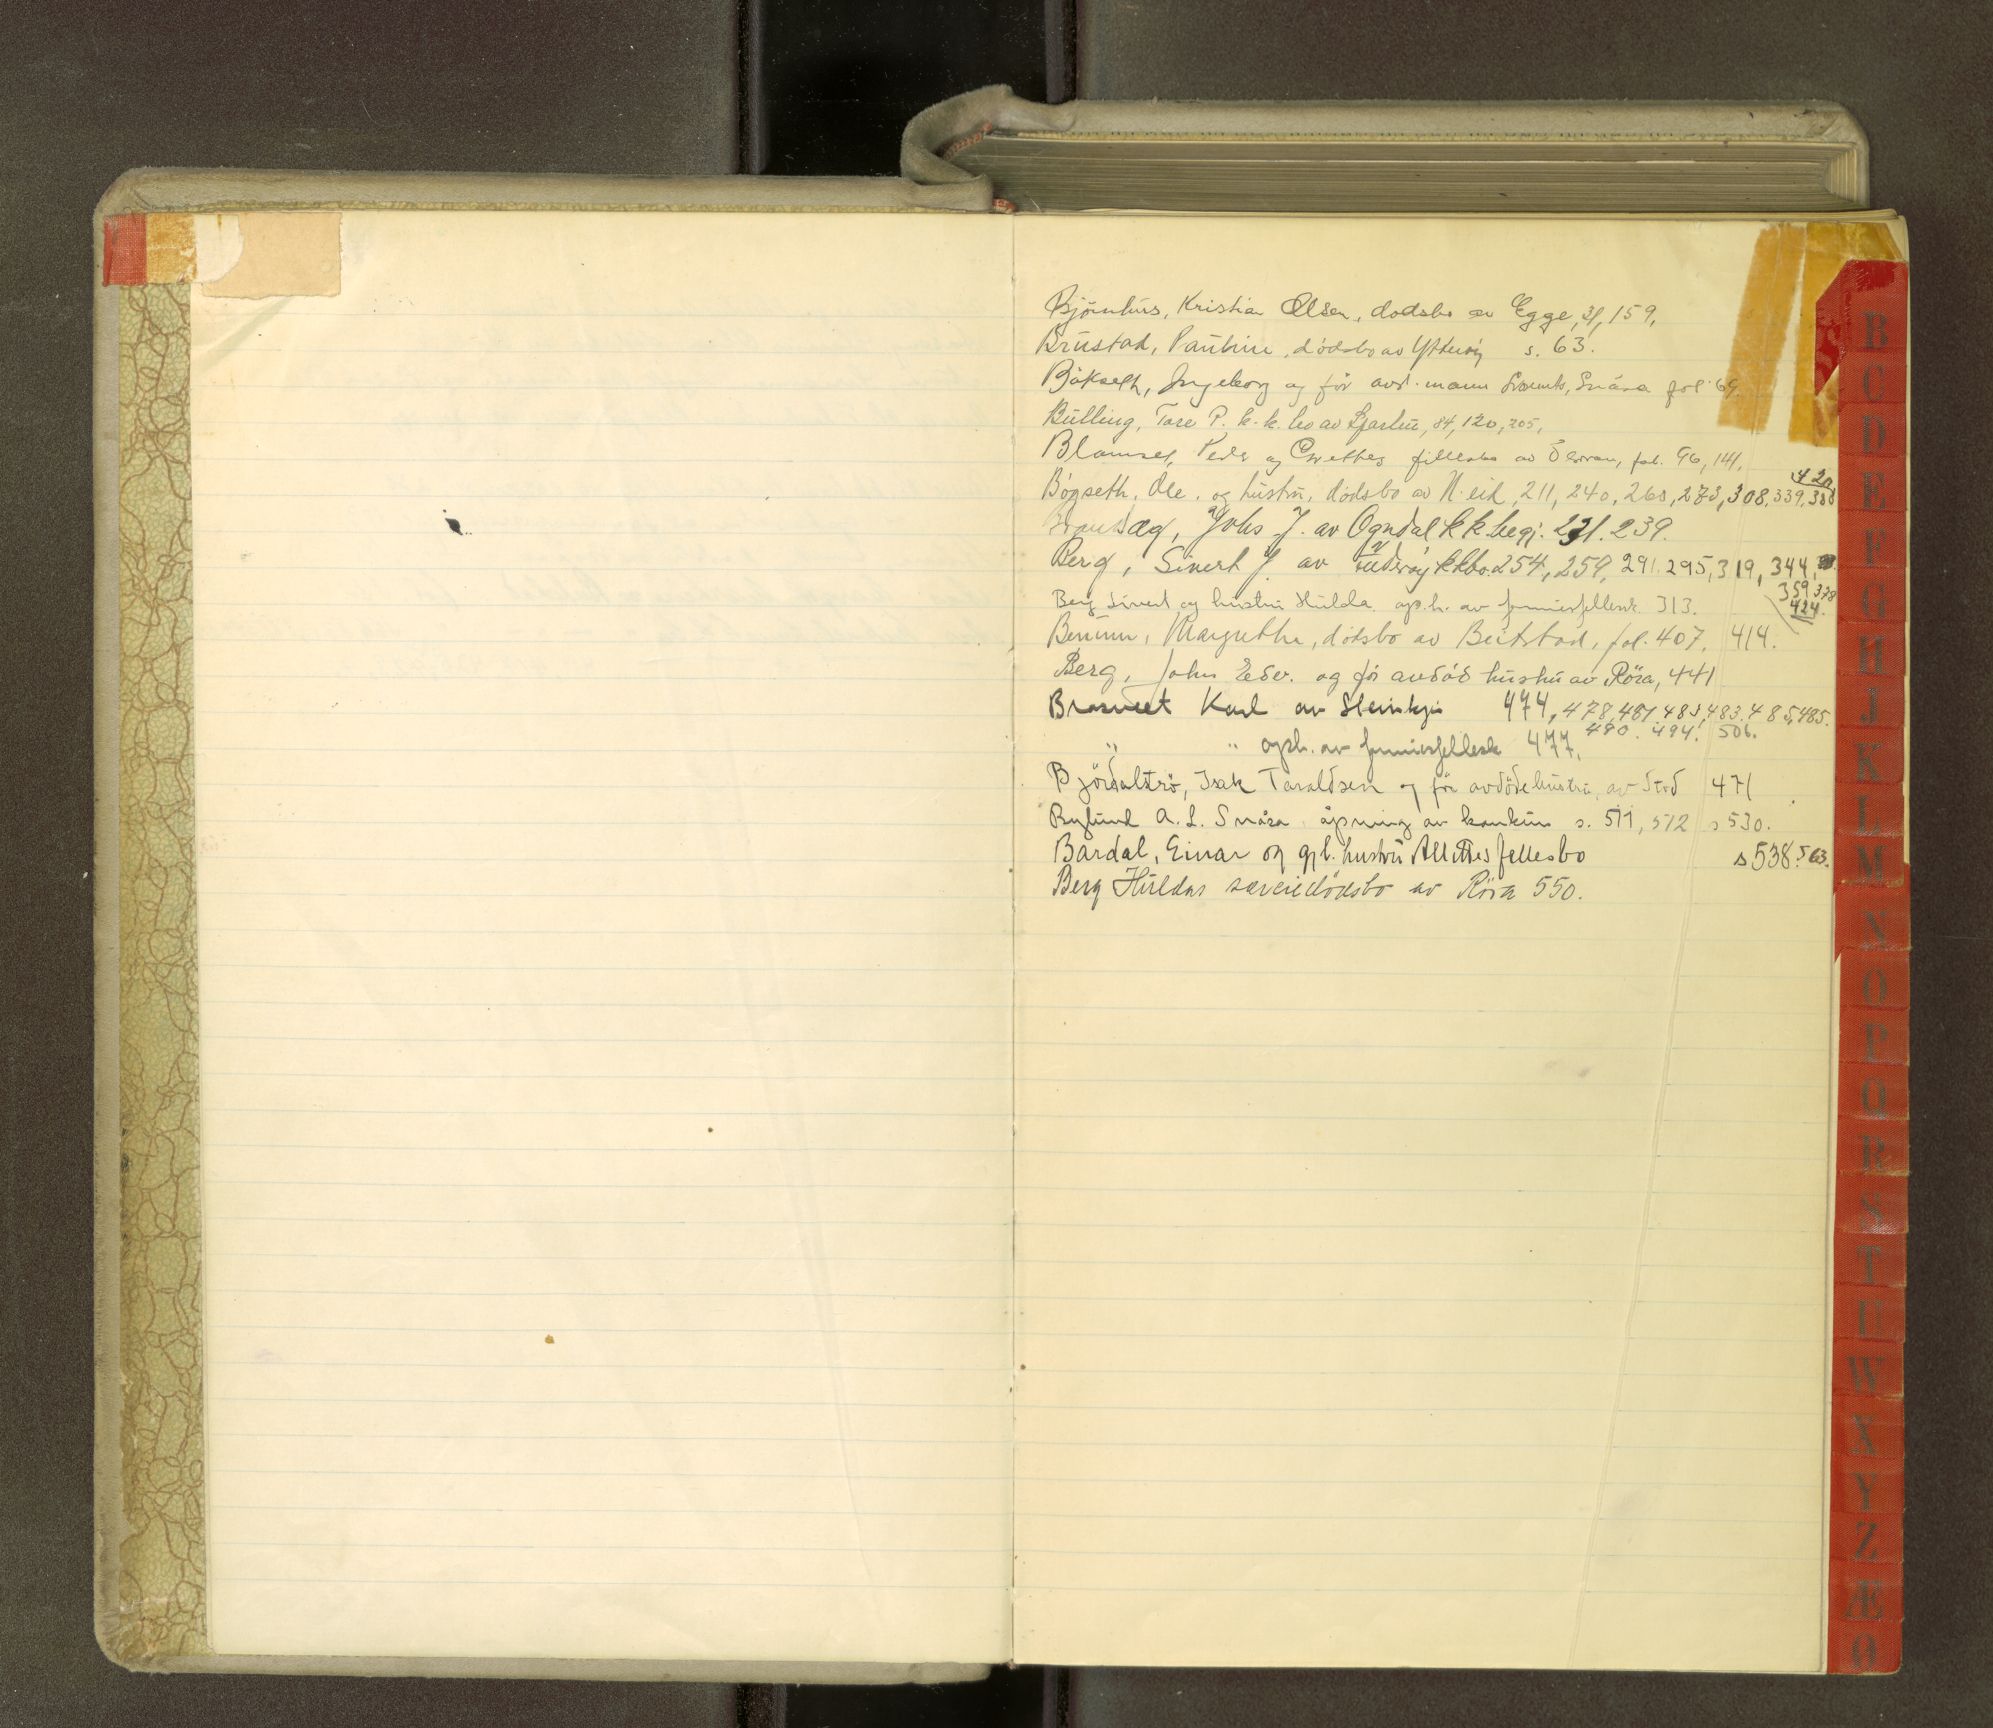 Bjørnhus, Kristian Olsen, dødsbo av Egge, 31, 159,
Brustad, Pauline, dødsbo av Ytterøy s. 63.
Bökseth, Ingeborg og för avd. mann Snåsa fol. 69.
Bulling, Tore P. k.k. bo av 84, 120, 205,
Peder og fellesbo av fol. 96, 141,
420
Bögseth, Ole. og hustru, dödsbo av N.eid, 211, 240, 260, 273, 308, 339, 388
Johs J. av Ogndal k k begj. 231. 239.
Berg, Sivert J. av k kbo. 254, 259, 291. 295, 319, 344,
359, 378
Berg Sivert og hustru Hulda. oph. av formuesfellesk. 313. 424.
Margrethe, dödsbo av Beitstad, fol. 407, 414.
Berg, Johs Edv. og för avdöd hustru av Röra, 441
Karl av Steinkjer 474, 478, 481, 483, 483. 485, 485.
490. 494. 506.
" " oph. av formuesfellesk 477.
Isak Taraldsen og för avdöde hustru, av Stod 471
Bylund A. L. Snåsa åpning av konkurs s. 511, 512 s 530.
Bardal, Einar og gjl. hustru fellesbo s 538. 563.
Berg Huldas særeiedödsbo av Röra 550.
B
C
D
E
F
G
H
J
K
L
M
N
O
P
Q
R
S
T
U
W
X
Y
Z
Æ
Ø